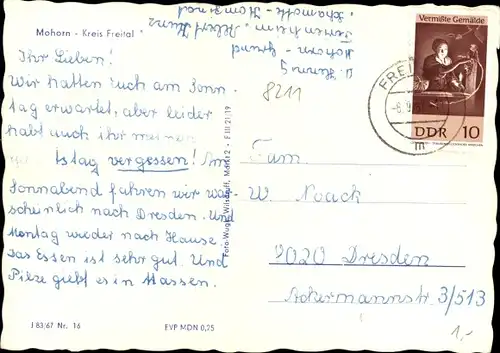 Mohorn - Kreis Freital
Ihr Lieben!
Wir hatten Euch am Sonn
tag erwartet, aber leider
habt auch ihr meinen
tstag vergessen! Am
Sonnabend fahren wir wahr
scheinlich nach Dresden. Und
Montag wieder nach Hause.
Das Essen ist sehr gut. Und
Pilze giebt es in Massen.
J 83/67 Nr. 16
EVP MDN 0,25
Mohorn - Grund
8211
Foto-Wugk, Wilsdruff, Markt 2 - F III 21/19
Vermißte Gemälde
DDR 10
FREI
Fam.
W. Noack
8020 Dresden
Ackermannstr. 3/513
1,-